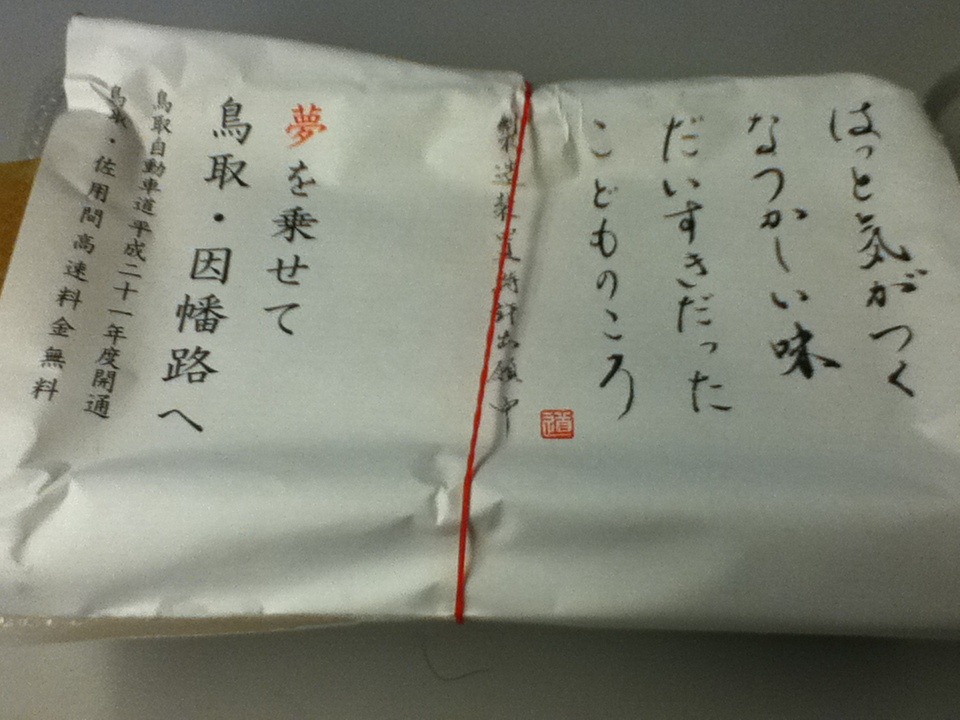 はっと気がつく
なつかしい味
だいすきだった
こどものころ
道
製造装置特許出願中
夢を乗せて
鳥取・因幡路へ
鳥取自動車道平成二十一年度開通
鳥取・佐用間高速料金無料